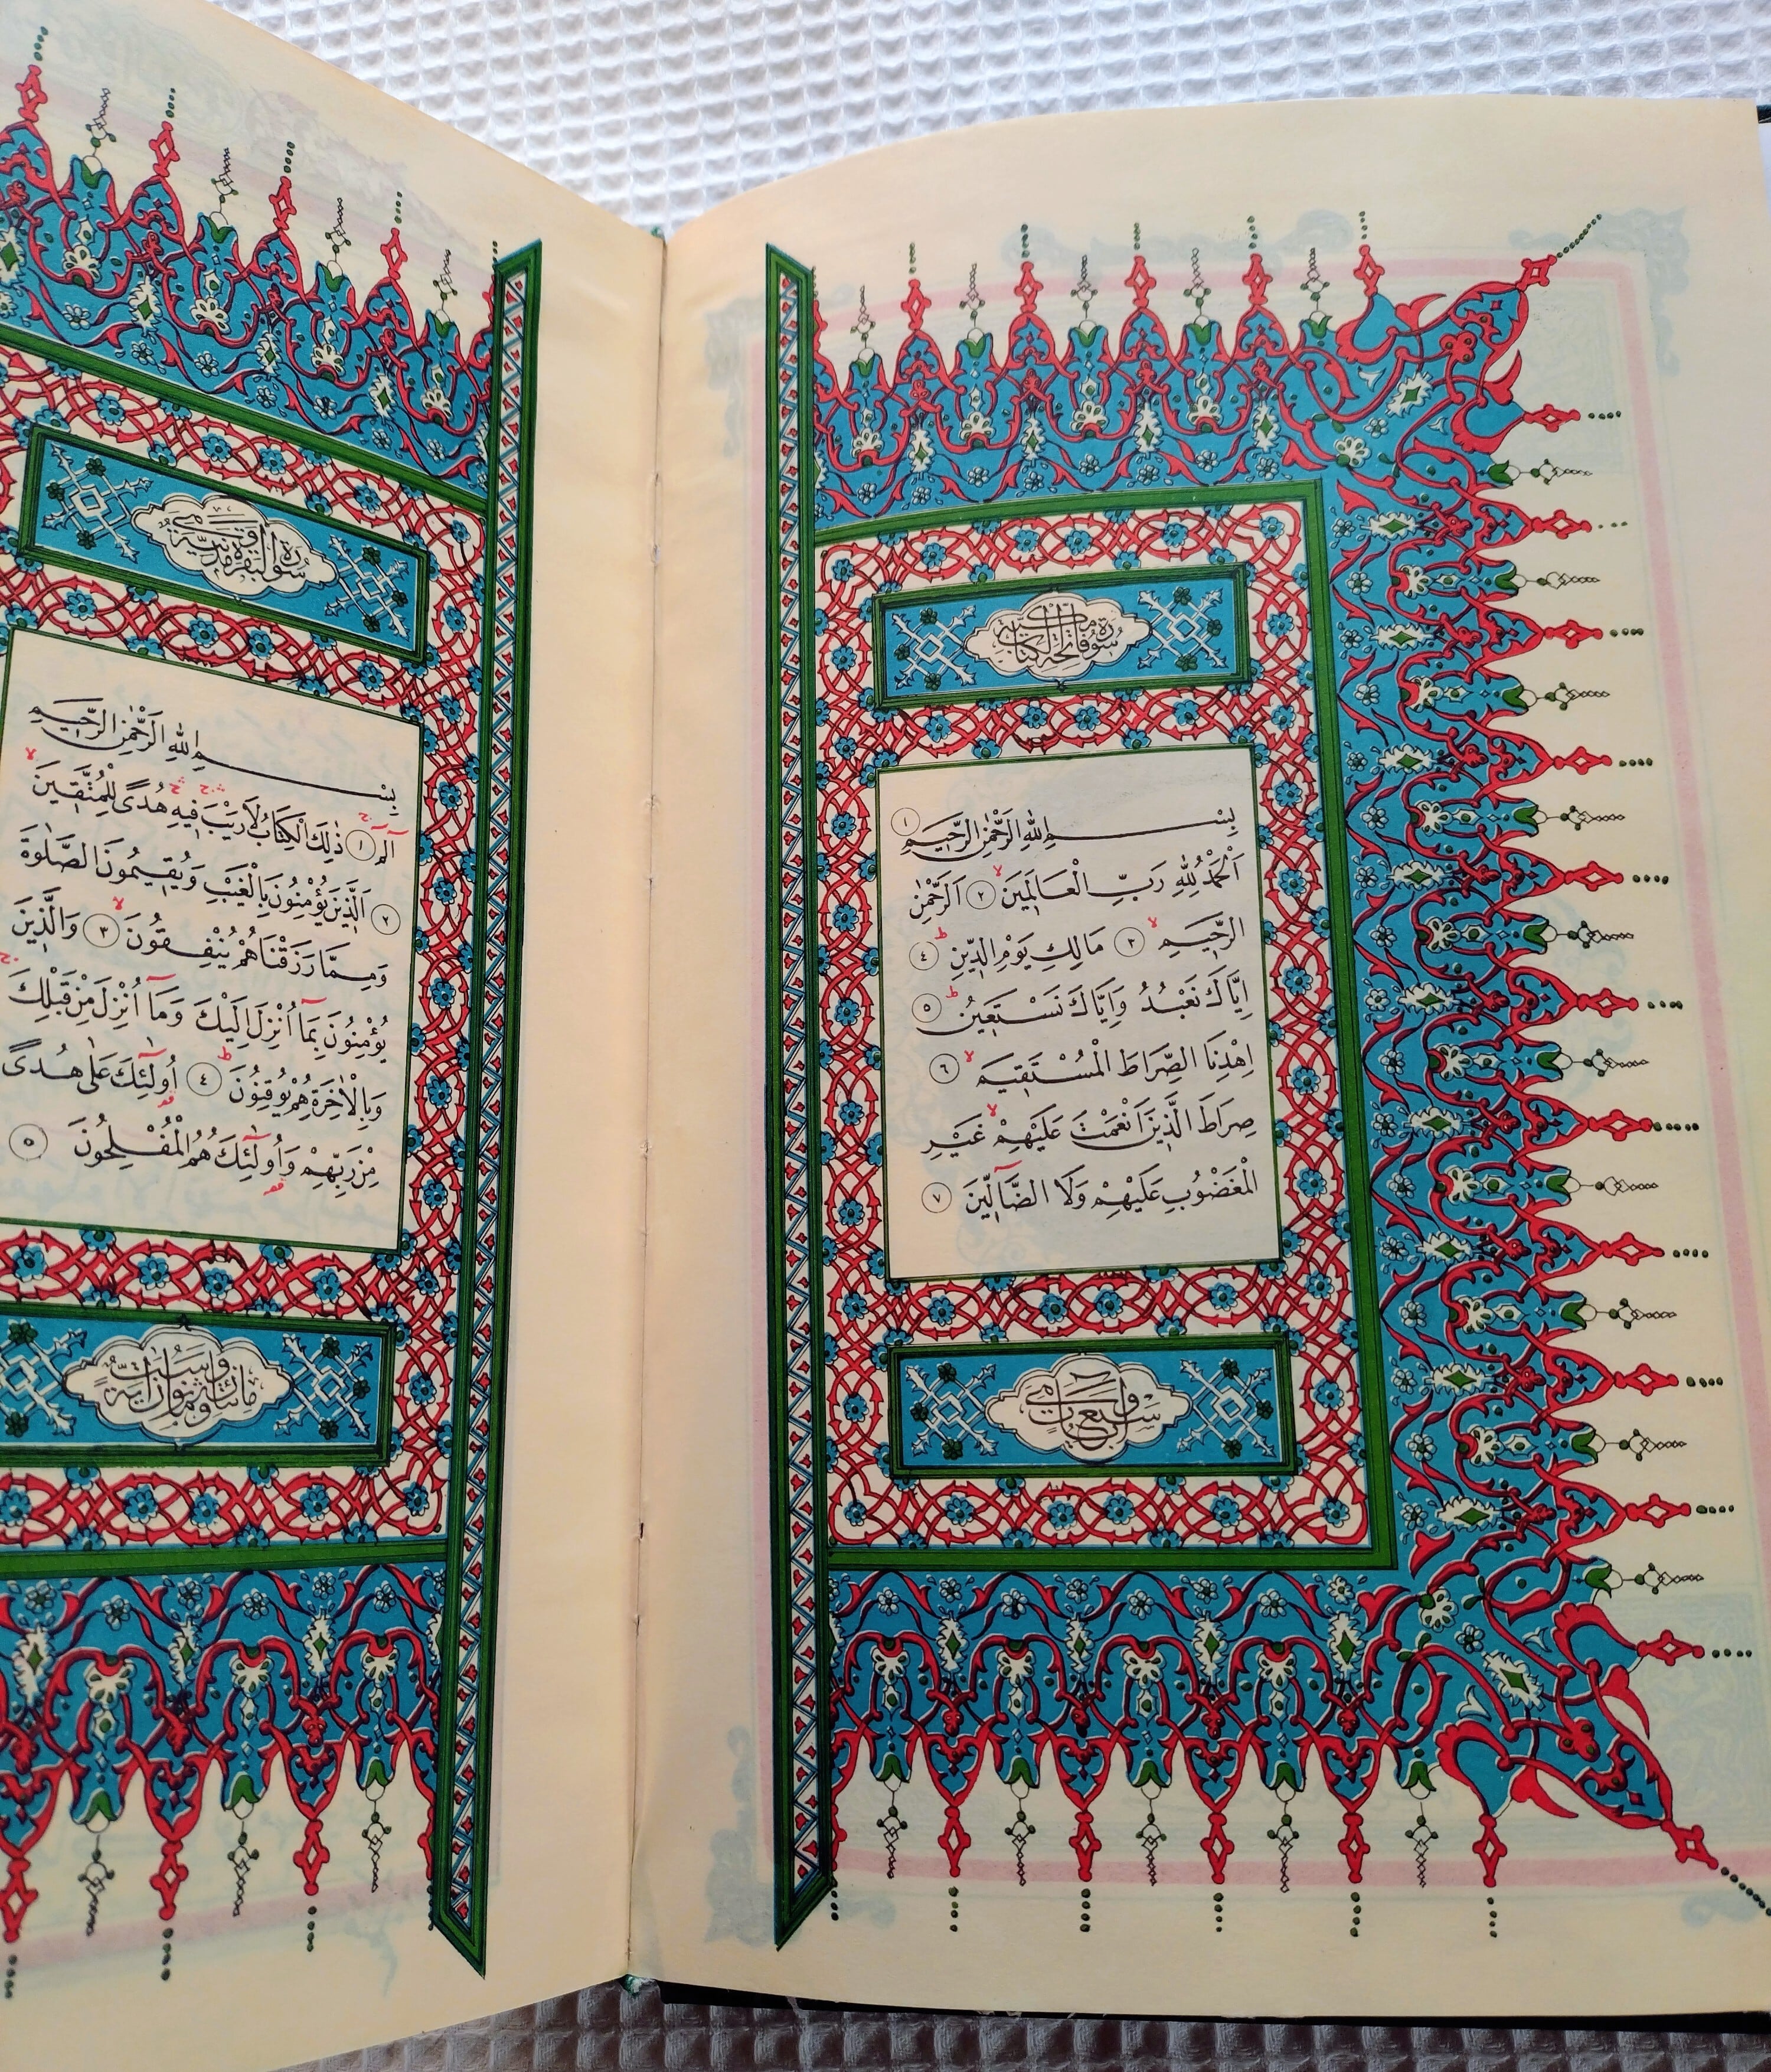 سُورَةُ فَاتِحَةِ الْكِتَابِ مَكِّيَّةٌ
بِسْمِ اللّٰهِ الرَّحْمٰنِ الرَّحِيمِ ١
اَلْحَمْدُ لِلّٰهِ رَبِّ الْعَالَمِينَ ٢ اَلرَّحْمٰنِ
الرَّحِيمِ ٣ مَالِكِ يَوْمِ الدِّينِ ٤
اِيَّاكَ نَعْبُدُ وَاِيَّاكَ نَسْتَعِينُ ٥
اِهْدِنَا الصِّرَاطَ الْمُسْتَقِيمَ ٦
صِرَاطَ الَّذِينَ اَنْعَمْتَ عَلَيْهِمْ غَيْرِ
الْمَغْضُوبِ عَلَيْهِمْ وَلَا الضَّٓالِّينَ ٧
وهي سبع آيات
سُورَةُ الْبَقَرَةِ مَدَنِيَّةٌ وهي
بِسْمِ اللّٰهِ الرَّحْمٰنِ الرَّحِيمِ
الٓمٓ ١ ذٰلِكَ الْكِتَابُ لَا رَيْبَ فِيهِ هُدًى لِلْمُتَّقِينَ
٢ اَلَّذِينَ يُؤْمِنُونَ بِالْغَيْبِ وَيُقِيمُونَ الصَّلٰوةَ
وَمِمَّا رَزَقْنَاهُمْ يُنْفِقُونَ ٣ وَالَّذِينَ
يُؤْمِنُونَ بِمَٓا اُنْزِلَ اِلَيْكَ وَمَٓا اُنْزِلَ مِنْ قَبْلِكَ
وَبِالْاٰخِرَةِ هُمْ يُوقِنُونَ ٤ اُولٰٓئِكَ عَلٰى هُدًى
مِنْ رَبِّهِمْ وَاُولٰٓئِكَ هُمُ الْمُفْلِحُونَ ٥
مائتان وست وثمانون آية